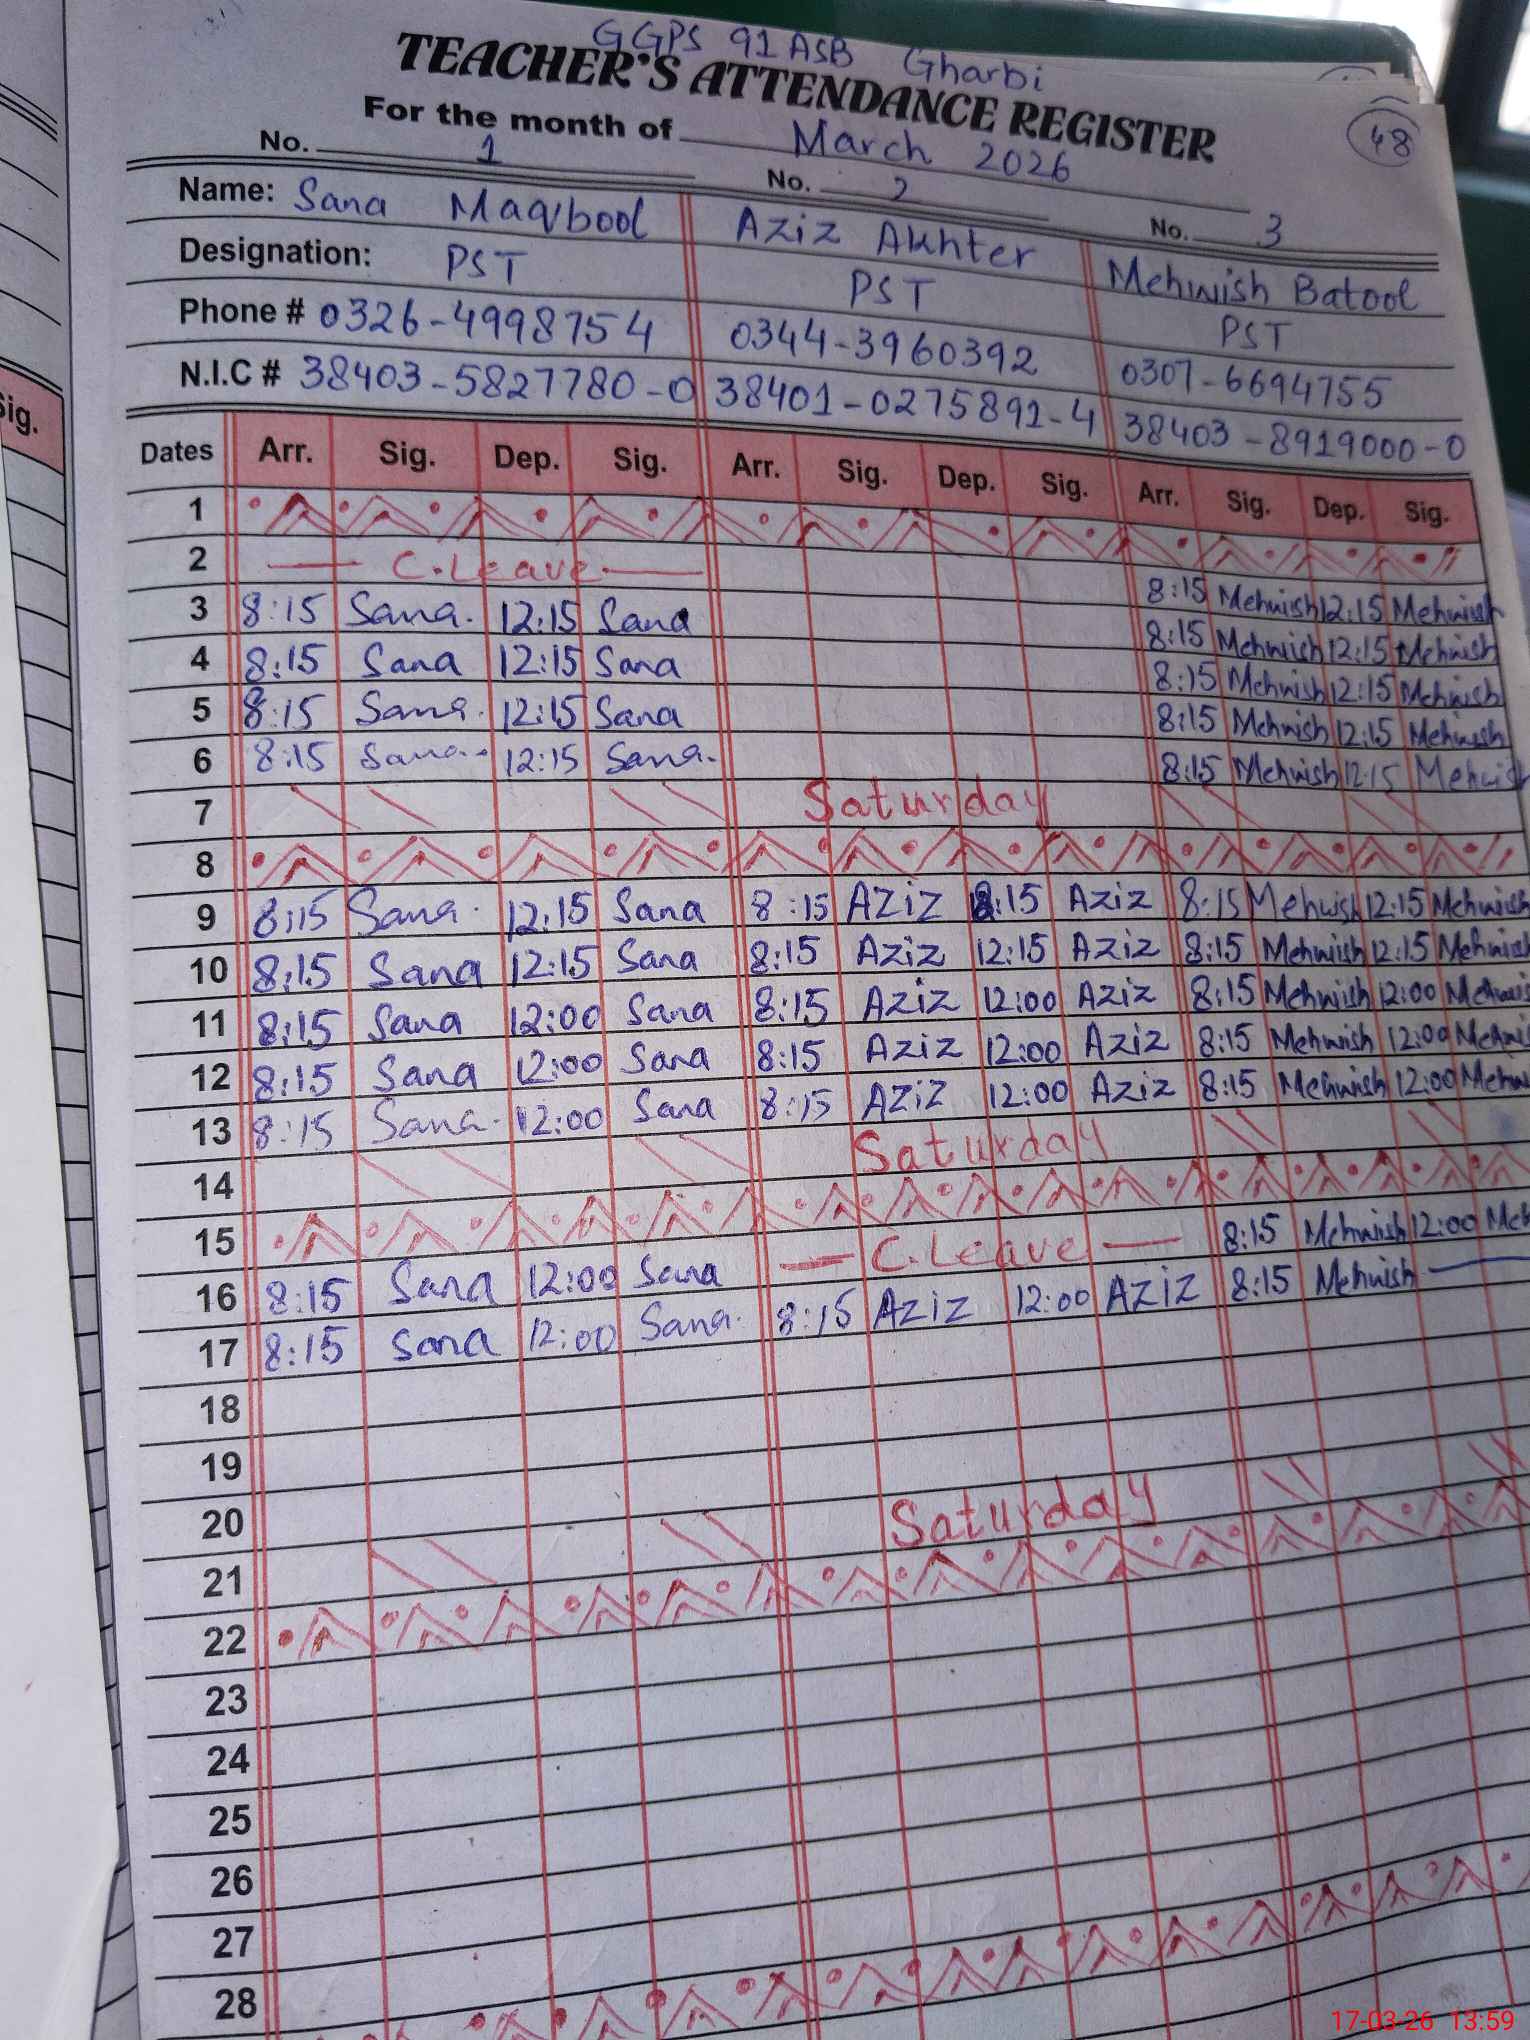 GGPS 91 ASB Gharbi
TEACHER'S ATTENDANCE REGISTER
48
For the month of March 2026
No. 1 No. 2 No. 3
Name: Sana Maqbool Aziz Akhter Mehwish Batool
Designation: PST PST PST
Phone # 0326-4998754 0344-3960392 0307-6694755
N.I.C # 38403-5827780-0 38401-0275891-4 38403-8919000-0
Sig.
Dates Arr. Sig. Dep. Sig. Arr. Sig. Dep. Sig. Arr. Sig. Dep. Sig.
1
2 C.Leave 8:15 Mehwish 12:15 Mehwish
3 8:15 Sana. 12:15 Sana 8:15 Mehwish 12:15 Mehwish
4 8:15 Sana 12:15 Sana 8:15 Mehwish 12:15 Mehwish
5 8:15 Sana. 12:15 Sana 8:15 Mehwish 12:15 Mehwish
6 8:15 Sana. 12:15 Sana. 8:15 Mehwish 12:15 Mehwish
7 Saturday
8
9 8:15 Sana. 12:15 Sana 8:15 Aziz 8:15 Aziz 8:15 Mehwish 12:15 Mehwish
10 8:15 Sana 12:15 Sana 8:15 Aziz 12:15 Aziz 8:15 Mehwish 12:15 Mehwish
11 8:15 Sana 12:00 Sana 8:15 Aziz 12:00 Aziz 8:15 Mehwish 12:00 Mehwis
12 8:15 Sana 12:00 Sana 8:15 Aziz 12:00 Aziz 8:15 Mehwish 12:00 Mehwi
13 8:15 Sana. 12:00 Sana 8:15 Aziz 12:00 Aziz 8:15 Mehwish 12:00 Mehw
14 Saturday
15
16 8:15 Sana 12:00 Sana C.Leave 8:15 Mehwish 12:00 Meh
17 8:15 Sana 12:00 Sana. 8:15 Aziz 12:00 Aziz 8:15 Mehwish
18
19
20
21 Saturday
22
23
24
25
26
27
28
17-03-26 13:59